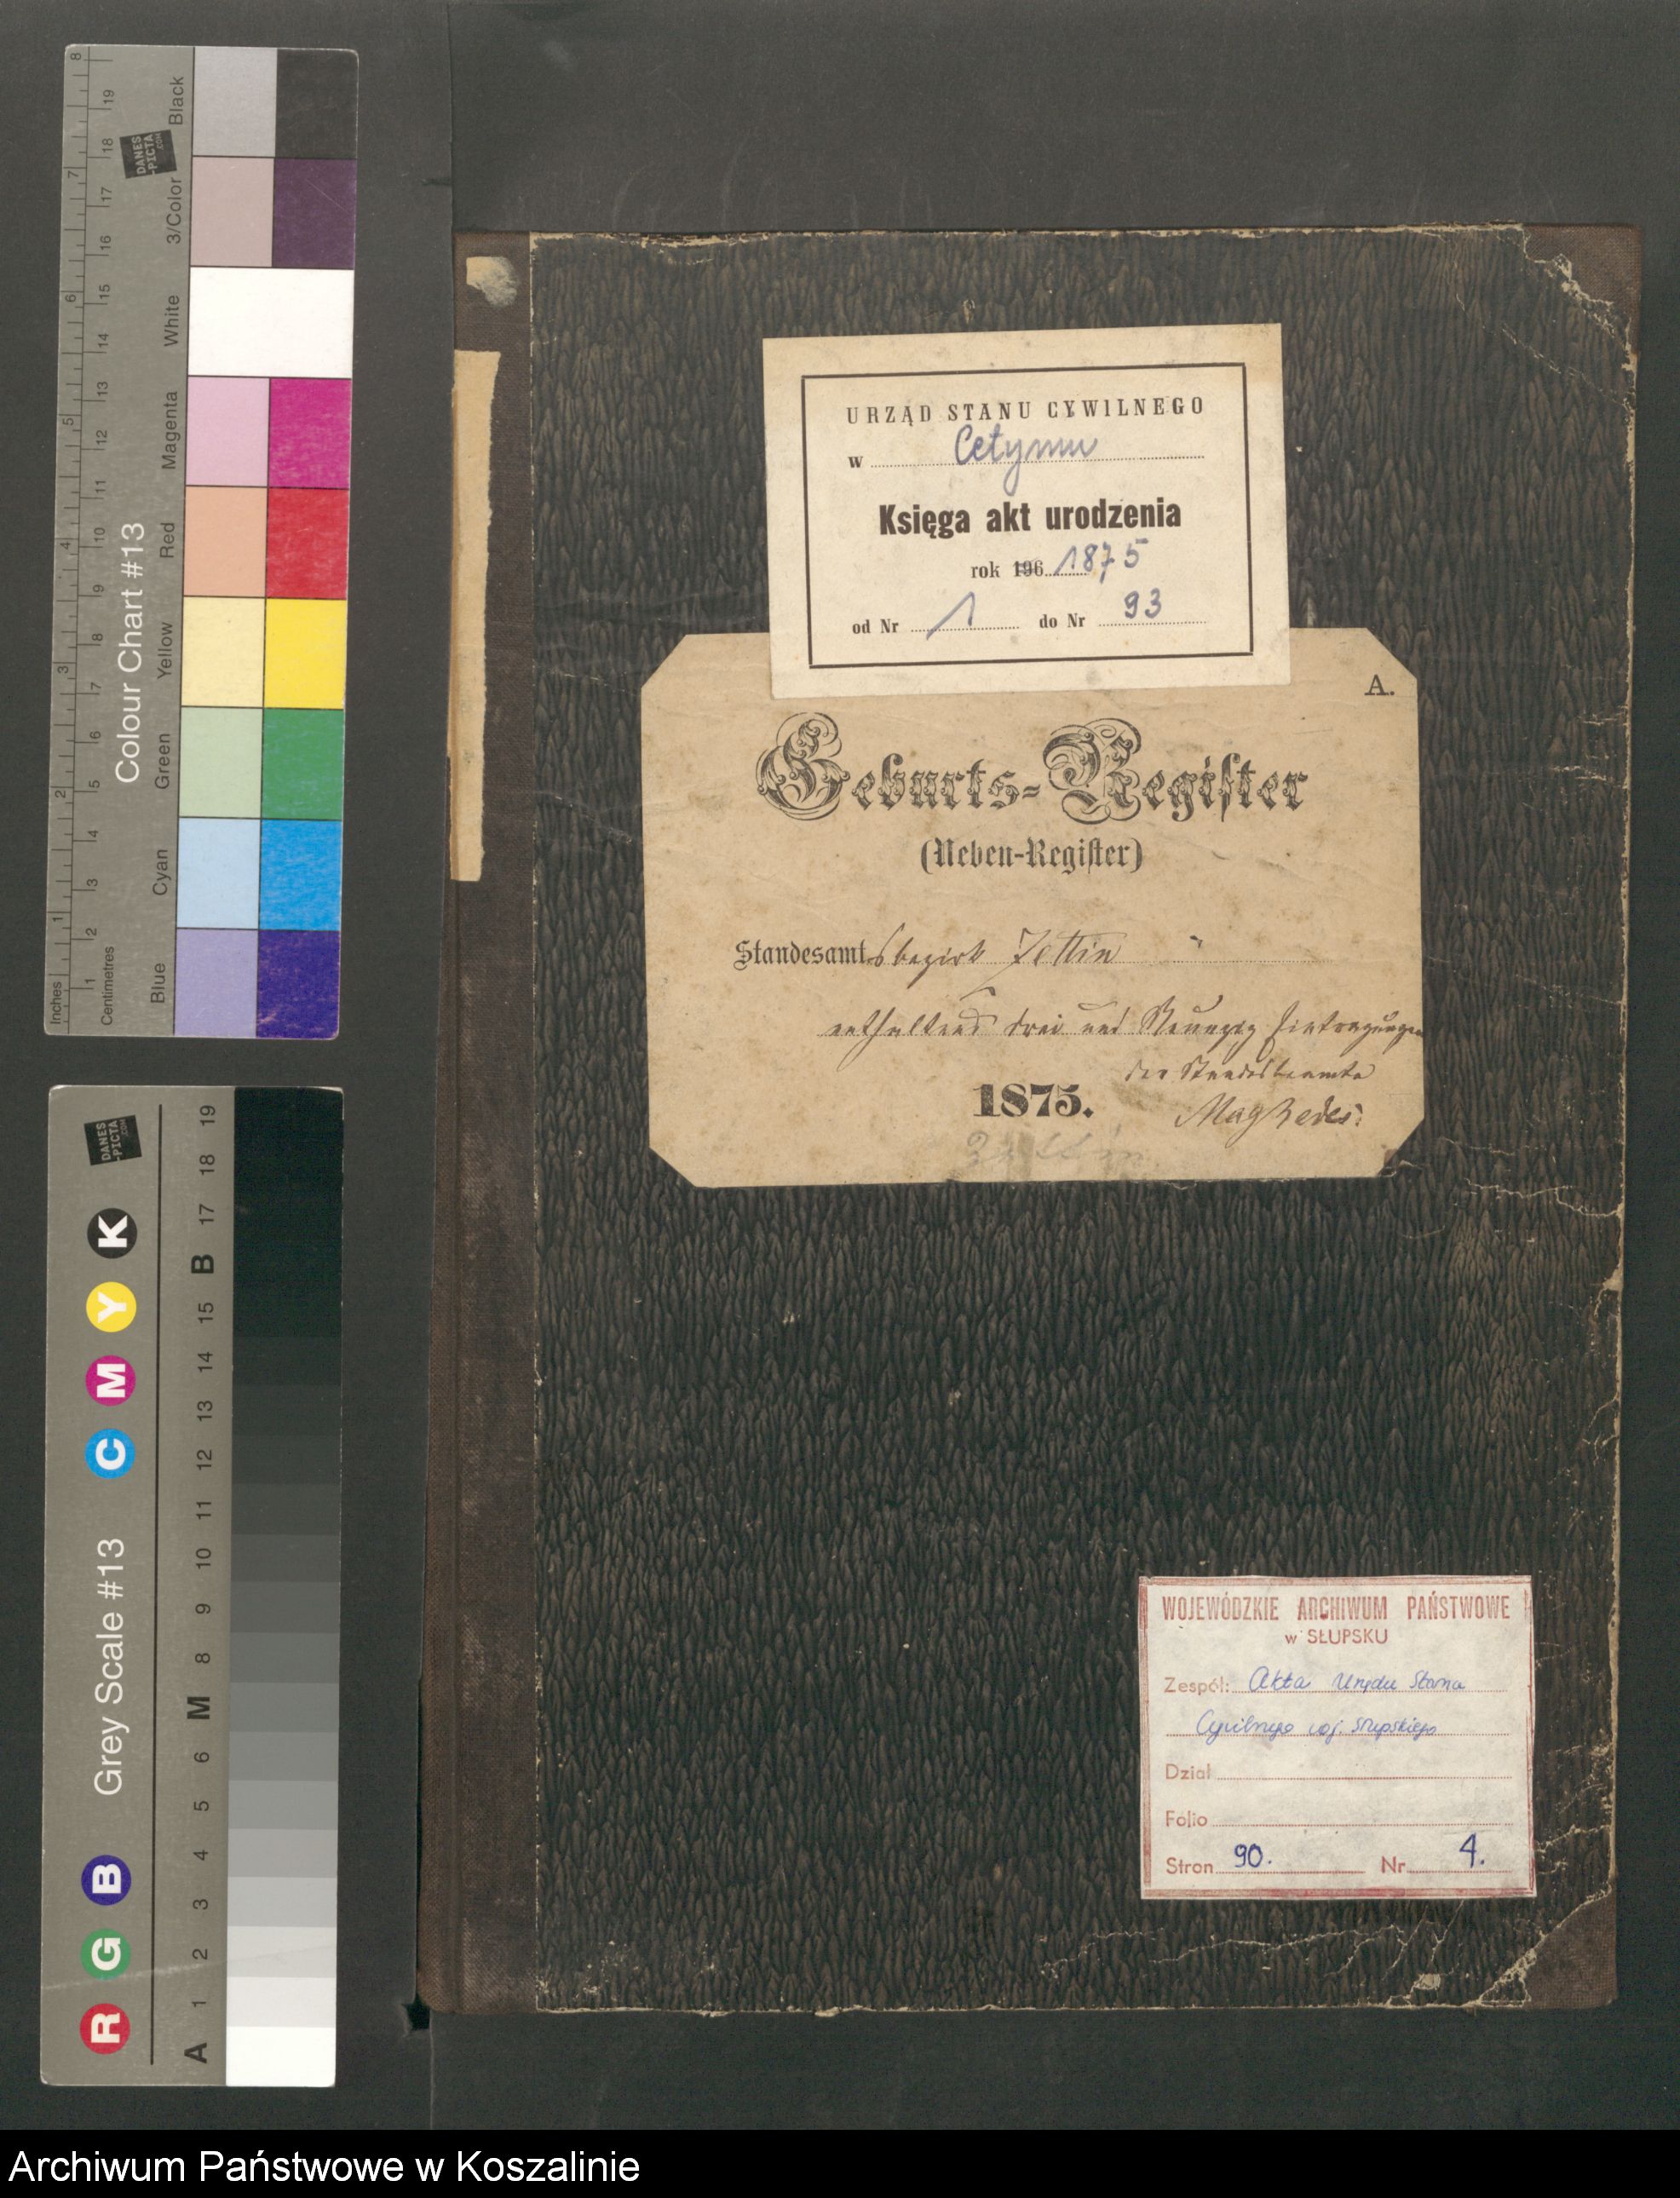 URZĄD STANU CYWILNEGO
w Cetyniu
Księga akt urodzenia
rok 196 1875
od Nr 1 do Nr 93
A.
Geburts-Register
(Neben-Register)
Standesamtsbezirk Zettin
enthaltend drei und Neunzig Eintragungen
der Standesbeamte
1875.
WOJEWÓDZKIE ARCHIWUM PAŃSTWOWE
w SŁUPSKU
Zespół: Akta Urzędu Stanu
Cywilnego woj. Słupskiego
Dział
Folio
Stron 90. Nr 4.
Colour Chart #13
Blue Cyan Green Yellow Red Magenta White 3/Color Black
Inches 1 2 3 4 5 6 7 8
Centimetres 1 2 3 4 5 6 7 8 9 10 11 12 13 14 15 16 17 18 19
DANES
-PICTA
.COM
Grey Scale #13
R G B C M Y K
A 1 2 3 4 5 6 M 8 9 10 11 12 13 14 15 B 17 18 19
DANES
-PICTA
.COM
Archiwum Państwowe w Koszalinie